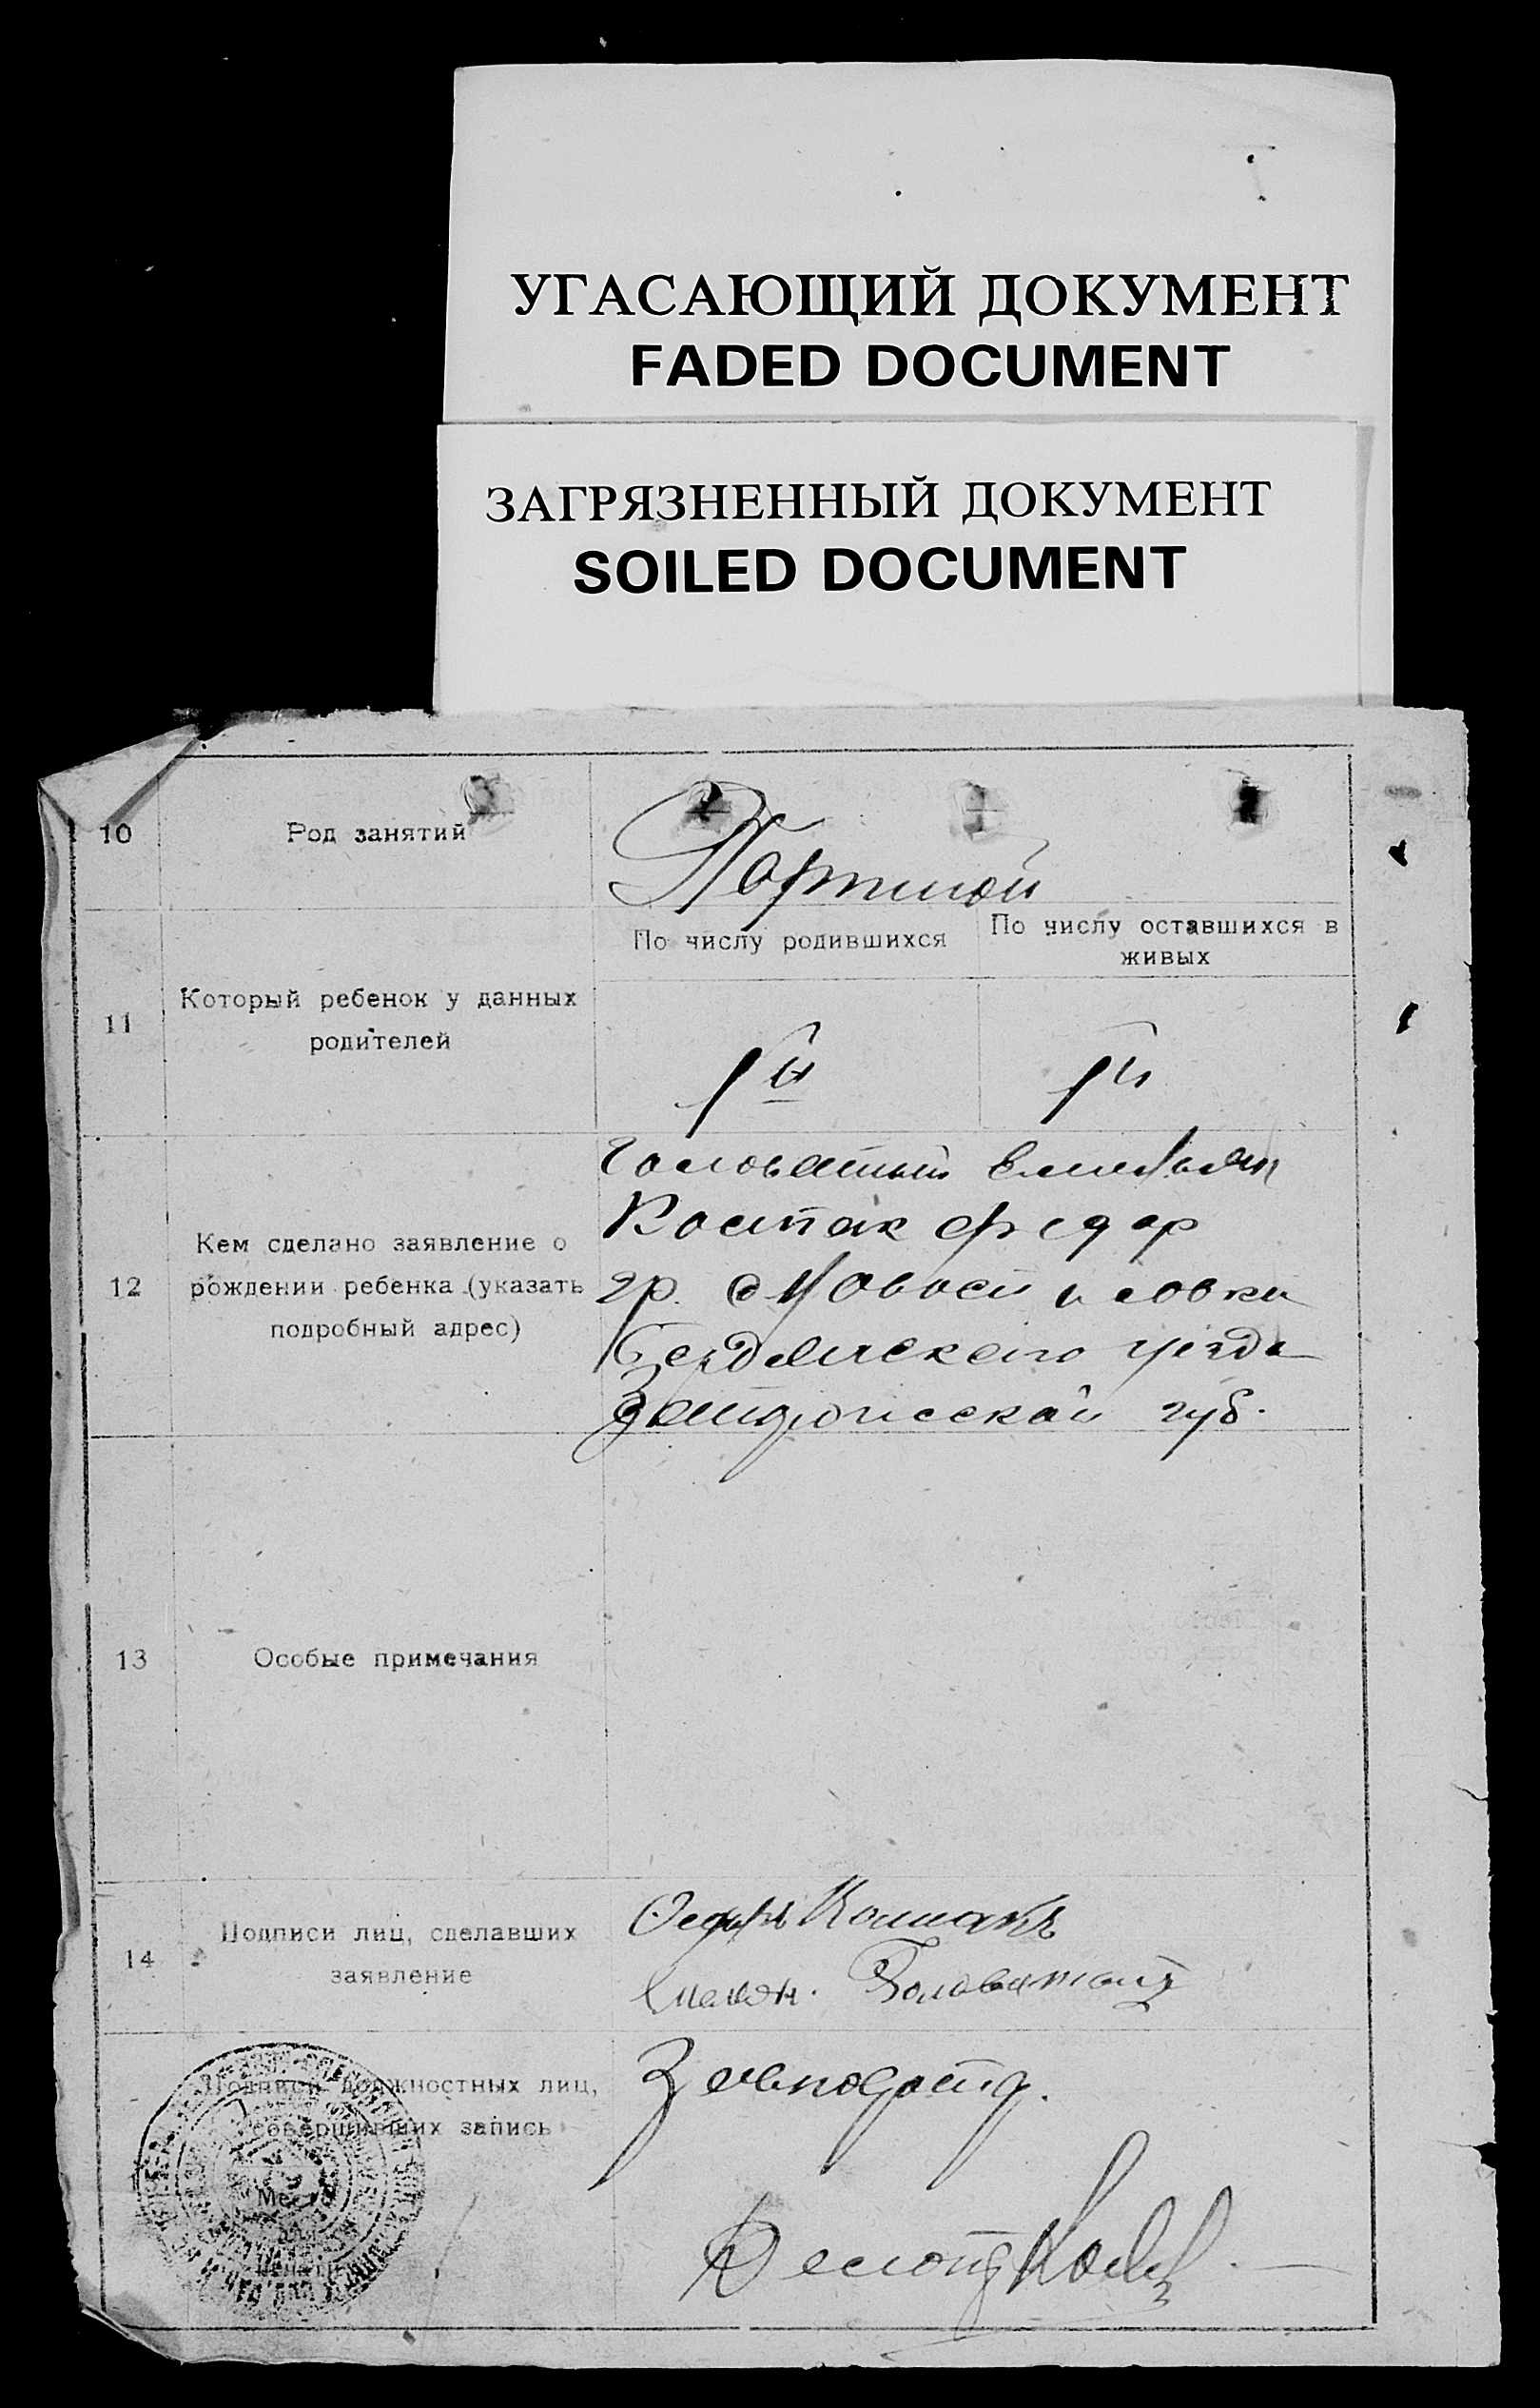 УГАСАЮЩИЙ ДОКУМЕНТ
FADED DOCUMENT
ЗАГРЯЗНЕННЫЙ ДОКУМЕНТ
SOILED DOCUMENT
10
Род занятий
Портной
11
Который ребенок у данных
родителей
По числу родившихся
По числу оставшихся в
живых
1й
1й
12
Кем сделано заявление о
рождении ребенка (указать
подробный адрес)
Головатый Емильян
Костак Федор
гр. с Новоспасовки
Бердянского уезда
губ.
13
Особые примечания
14
Подписи лиц, сделавших
заявление
Головатый
Подписи должностных лиц,
совершивших запись
Место
для
печати